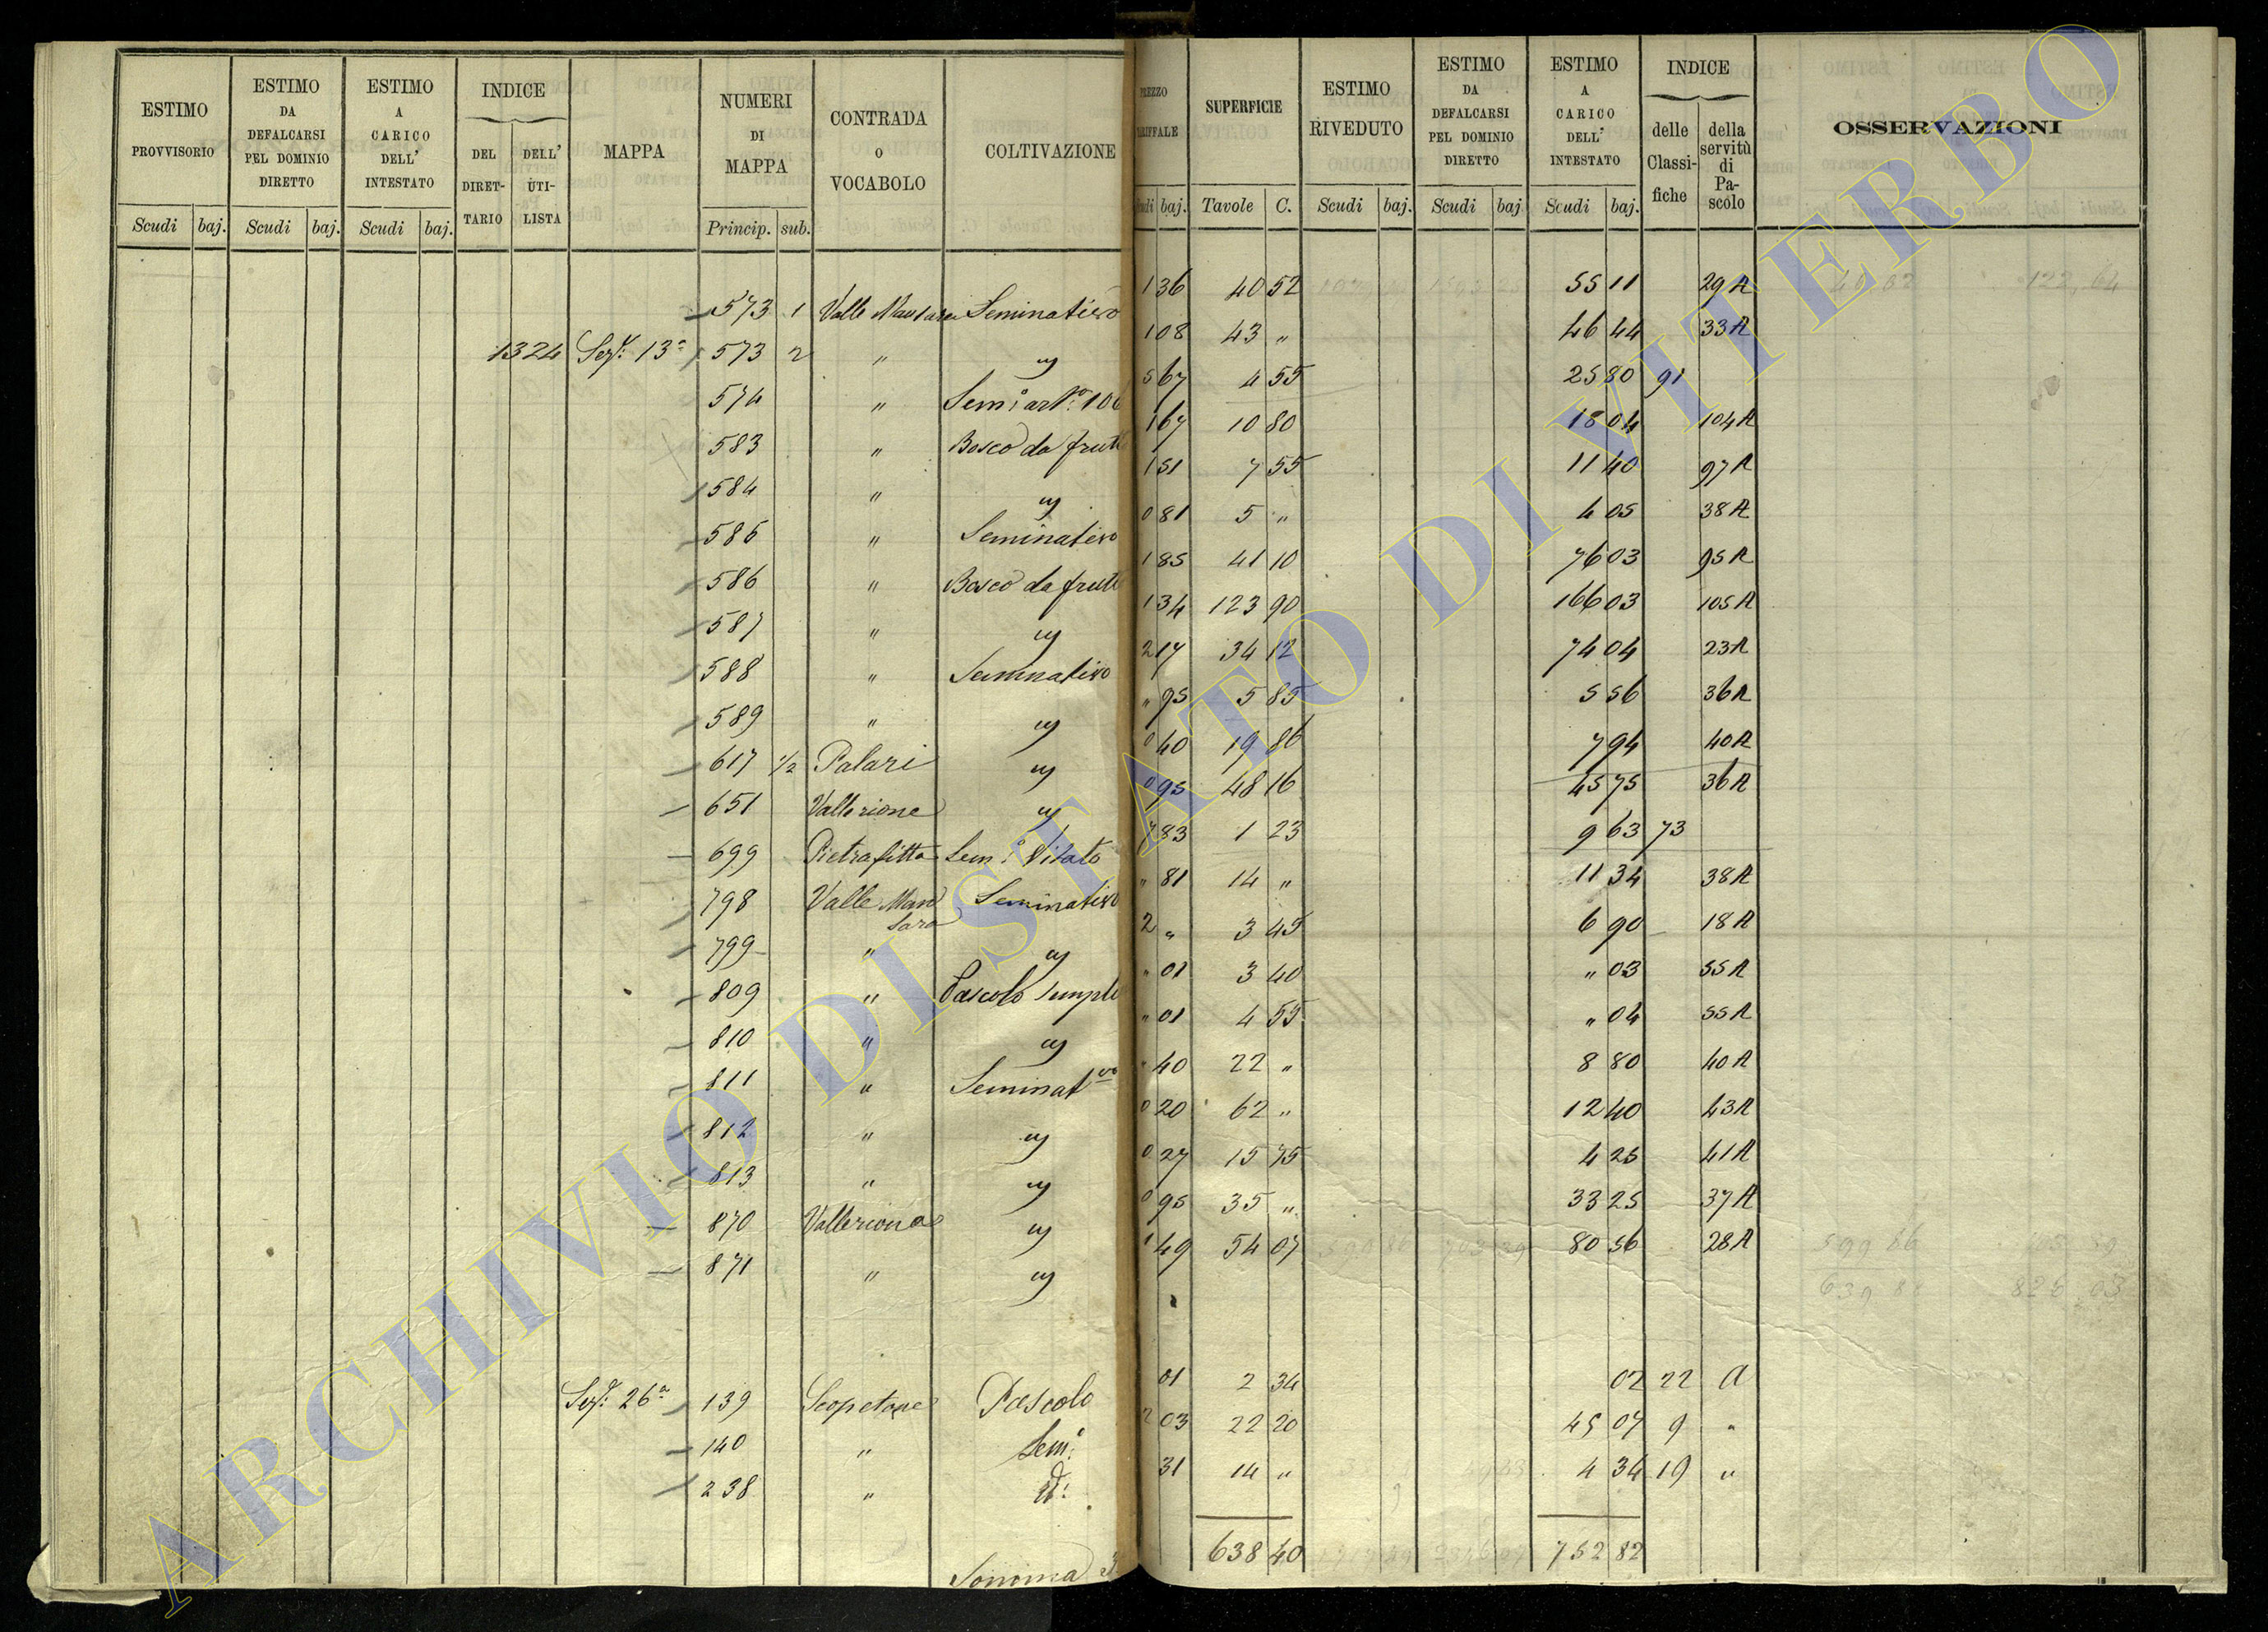 ESTIMO PROVVISORIO | ESTIMO DA DEFALCARSI PEL DOMINIO DIRETTO | ESTIMO A CARICO DELL' INTESTATO | INDICE DEL DIRET-TARIO | DELL' UTI-LISTA | MAPPA | NUMERI DI MAPPA | CONTRADA O VOCABOLO | COLTIVAZIONE | SUPERFICIE | ESTIMO RIVEDUTO | ESTIMO DA DEFALCARSI PEL DOMINIO DIRETTO | ESTIMO A CARICO DELL' INTESTATO | INDICE delle Classi-fiche | della servitù di Pa-scolo | OSSERVAZIONI
Scudi baj. Scudi baj. Scudi baj. Princip. sub. baj. Tavole C. Scudi baj. Scudi baj Scudi baj.
573 1 Valle Seminativo 1 36 40 52 55 11 29 A
1324 Sez: 13ª 573 2 " " 1 08 43 " 46 44 33 A
574 " Sem: 5 67 4 55 25 80 91
583 " Bosco da frutto 1 67 10 80 18 04 104 A
584 " " 1 51 7 55 11 40 97 A
585 " Seminativo 0 81 5 " 4 05 38 A
586 " Bosco da frutto 1 85 41 10 76 03 95 A
587 " " 1 34 123 90 166 03 105 A
588 " Seminativo 2 17 34 12 74 04 23 A
589 " " " 95 5 85 5 56 36 A
617 1/2 Palari " 0 40 19 86 7 94 40 A
651 Vallerione " 0 95 48 16 45 75 36 A
699 Pietrafitta Sem: Vitato 7 83 1 23 9 63 73
798 Valle Man Seminativo " 81 14 " 11 34 38 A
sara
799 " " 2 " 3 45 6 90 18 A
809 " Pascolo " 01 3 40 " 03 55 A
810 " " " 01 4 55 " 04 55 A
811 " Seminat vo " 40 22 " 8 80 40 A
812 " " 0 20 62 " 12 40 43 A
813 " " 0 27 15 75 4 25 41 A
870 Valleriona " 0 95 35 " 33 25 37 A
871 " " 1 49 54 07 80 56 28 A
Sez: 26ª 139 Pascolo 01 2 34 02 22 A
140 " Sem: 2 03 22 20 45 07 9 "
238 " d: 31 14 " 4 34 19 "
Somma 638 40 752 82
ARCHIVIO DI STATO DI VITERBO